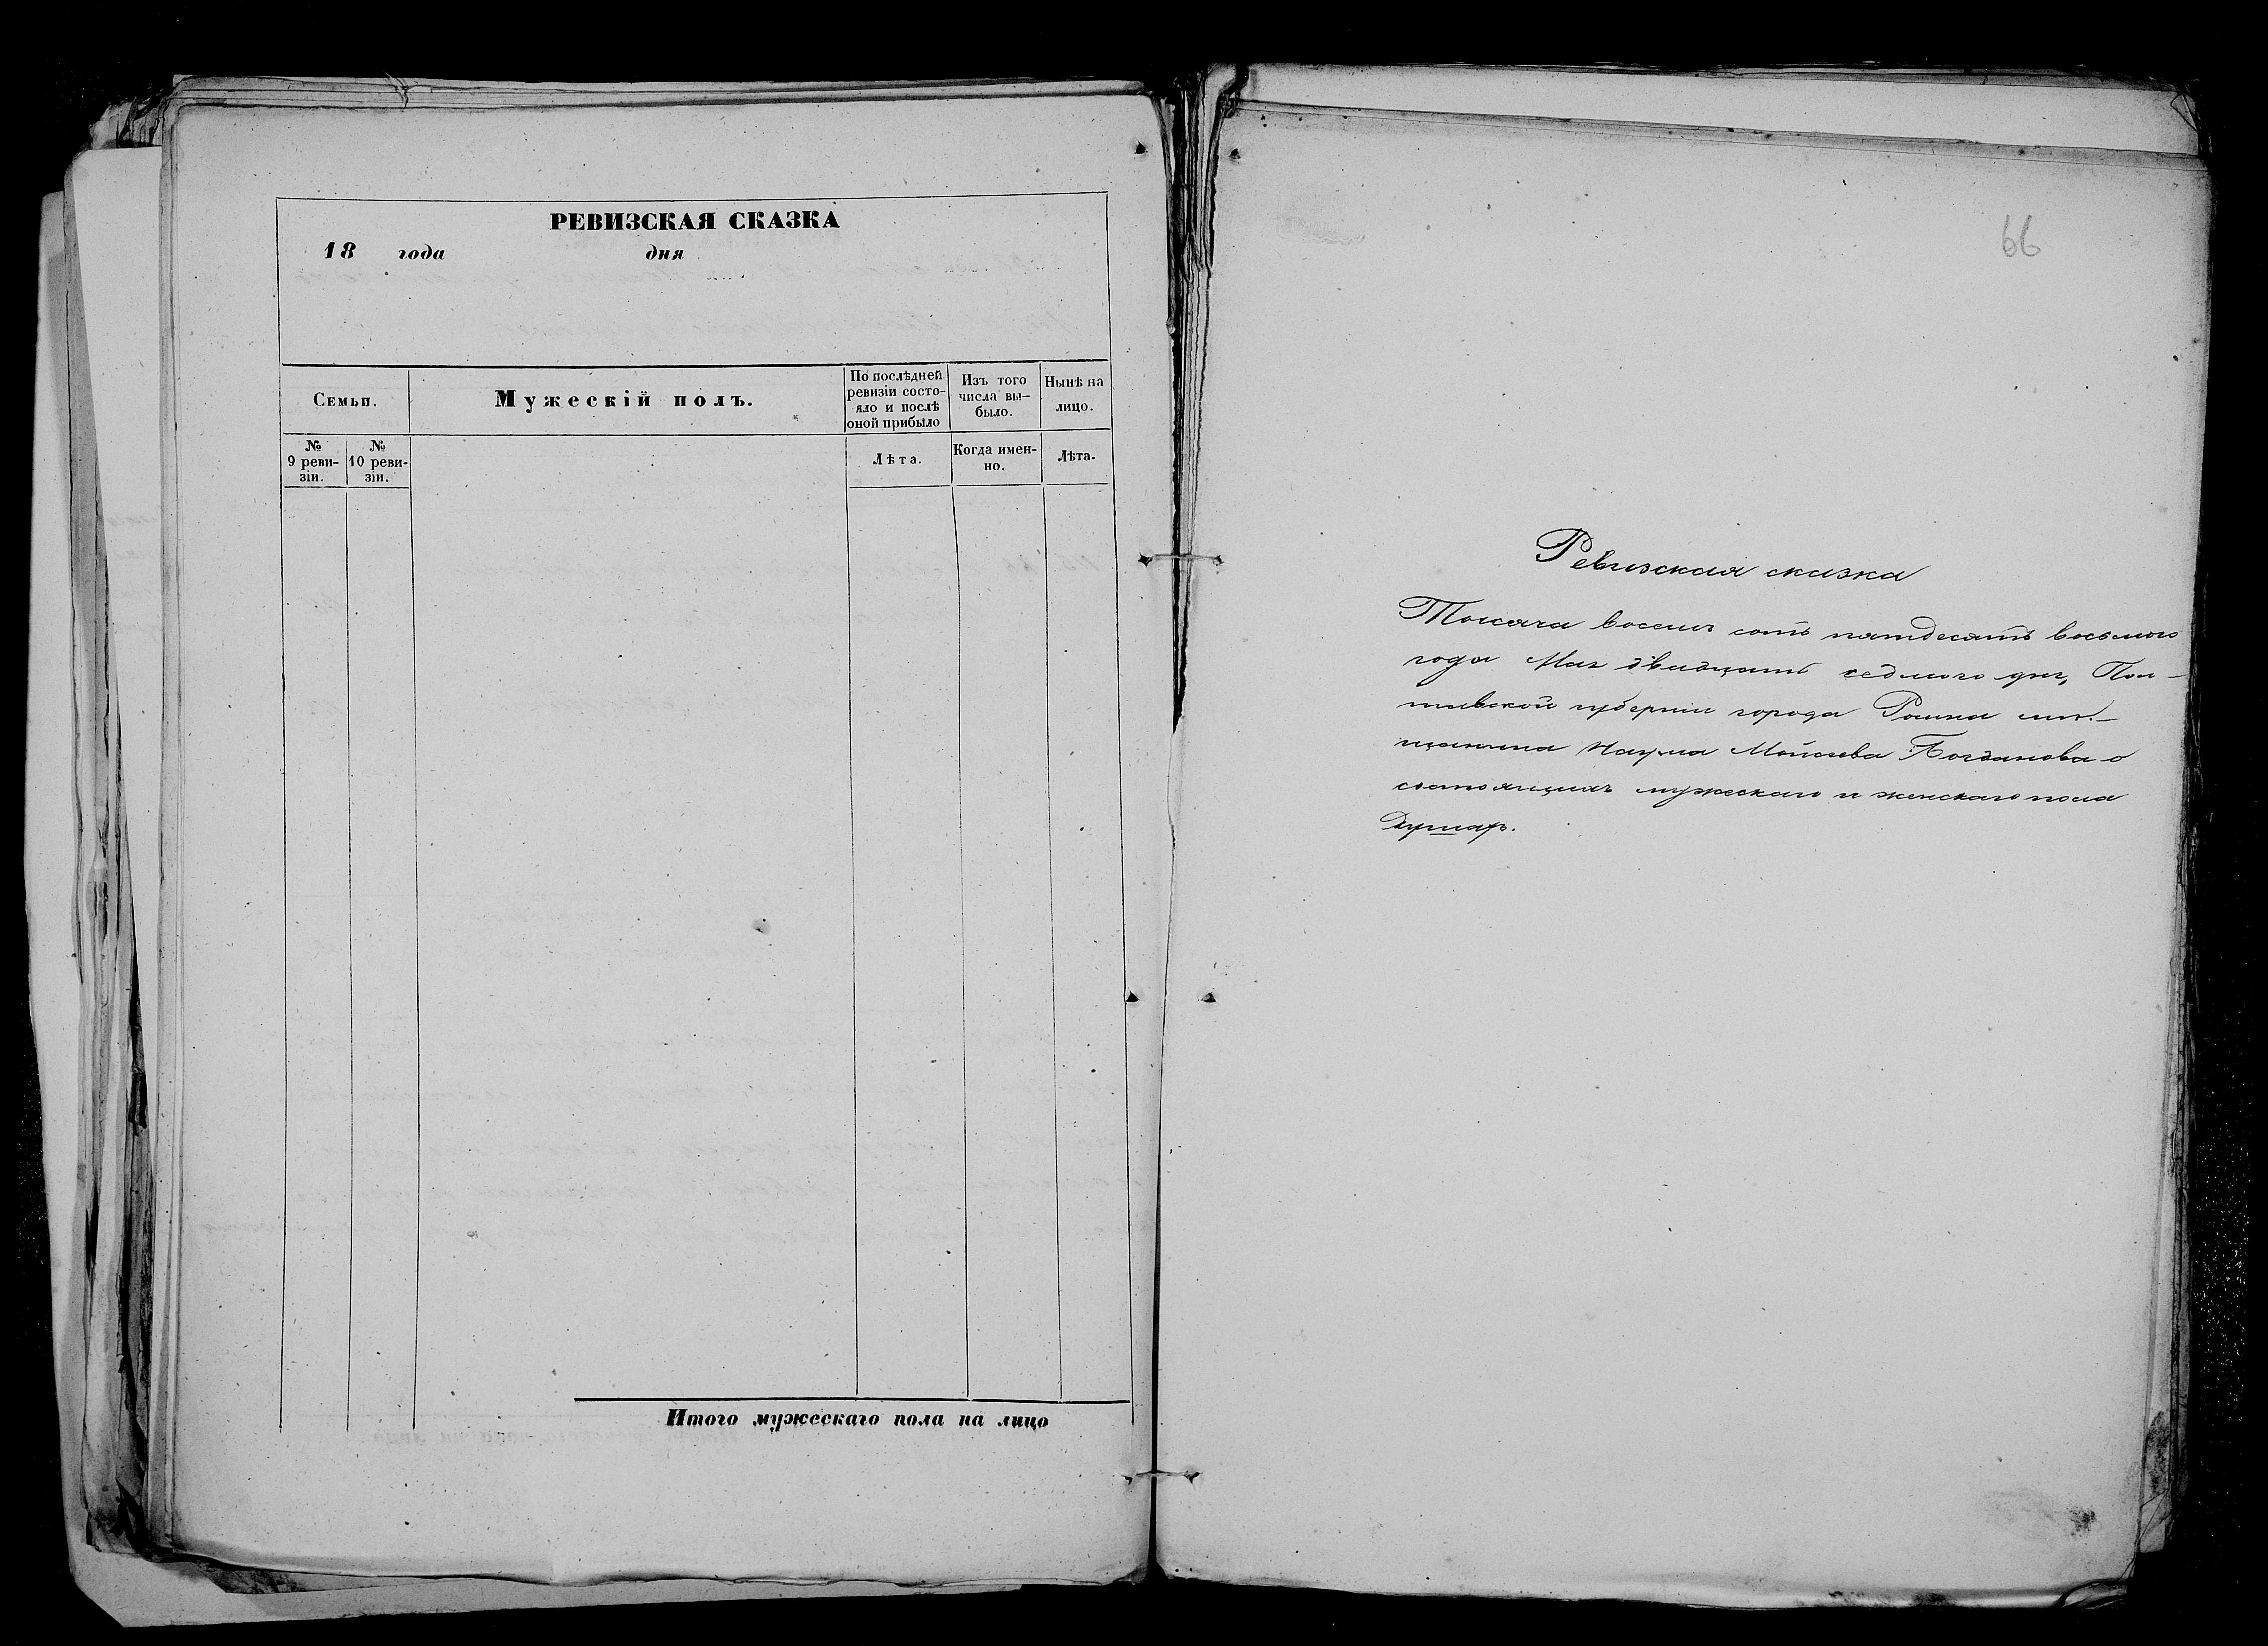 РЕВИЗСКАЯ СКАЗКА
18 года дня
Семьи.
Мужескій полъ.
По послѣдней
ревизіи состо-
яло и послѣ
оной прибыло
Изъ того
числа вы-
было.
Нынѣ на
лицо.
№
9 реви-
зіи.
№
10 реви-
зіи.
Лѣта.
Когда имен-
но.
Лѣта.
Итого мужескаго пола на лицо
66
Ревизская сказка
Тысяча восемь сотъ пятдесятъ восьмого
года Мая двадцать седмого дня, Пол-
тавской губерніи города Ромна мѣ-
щанина Наума Мойсеева Богданова о
состоящихъ мужескаго и женскаго пола
душах.